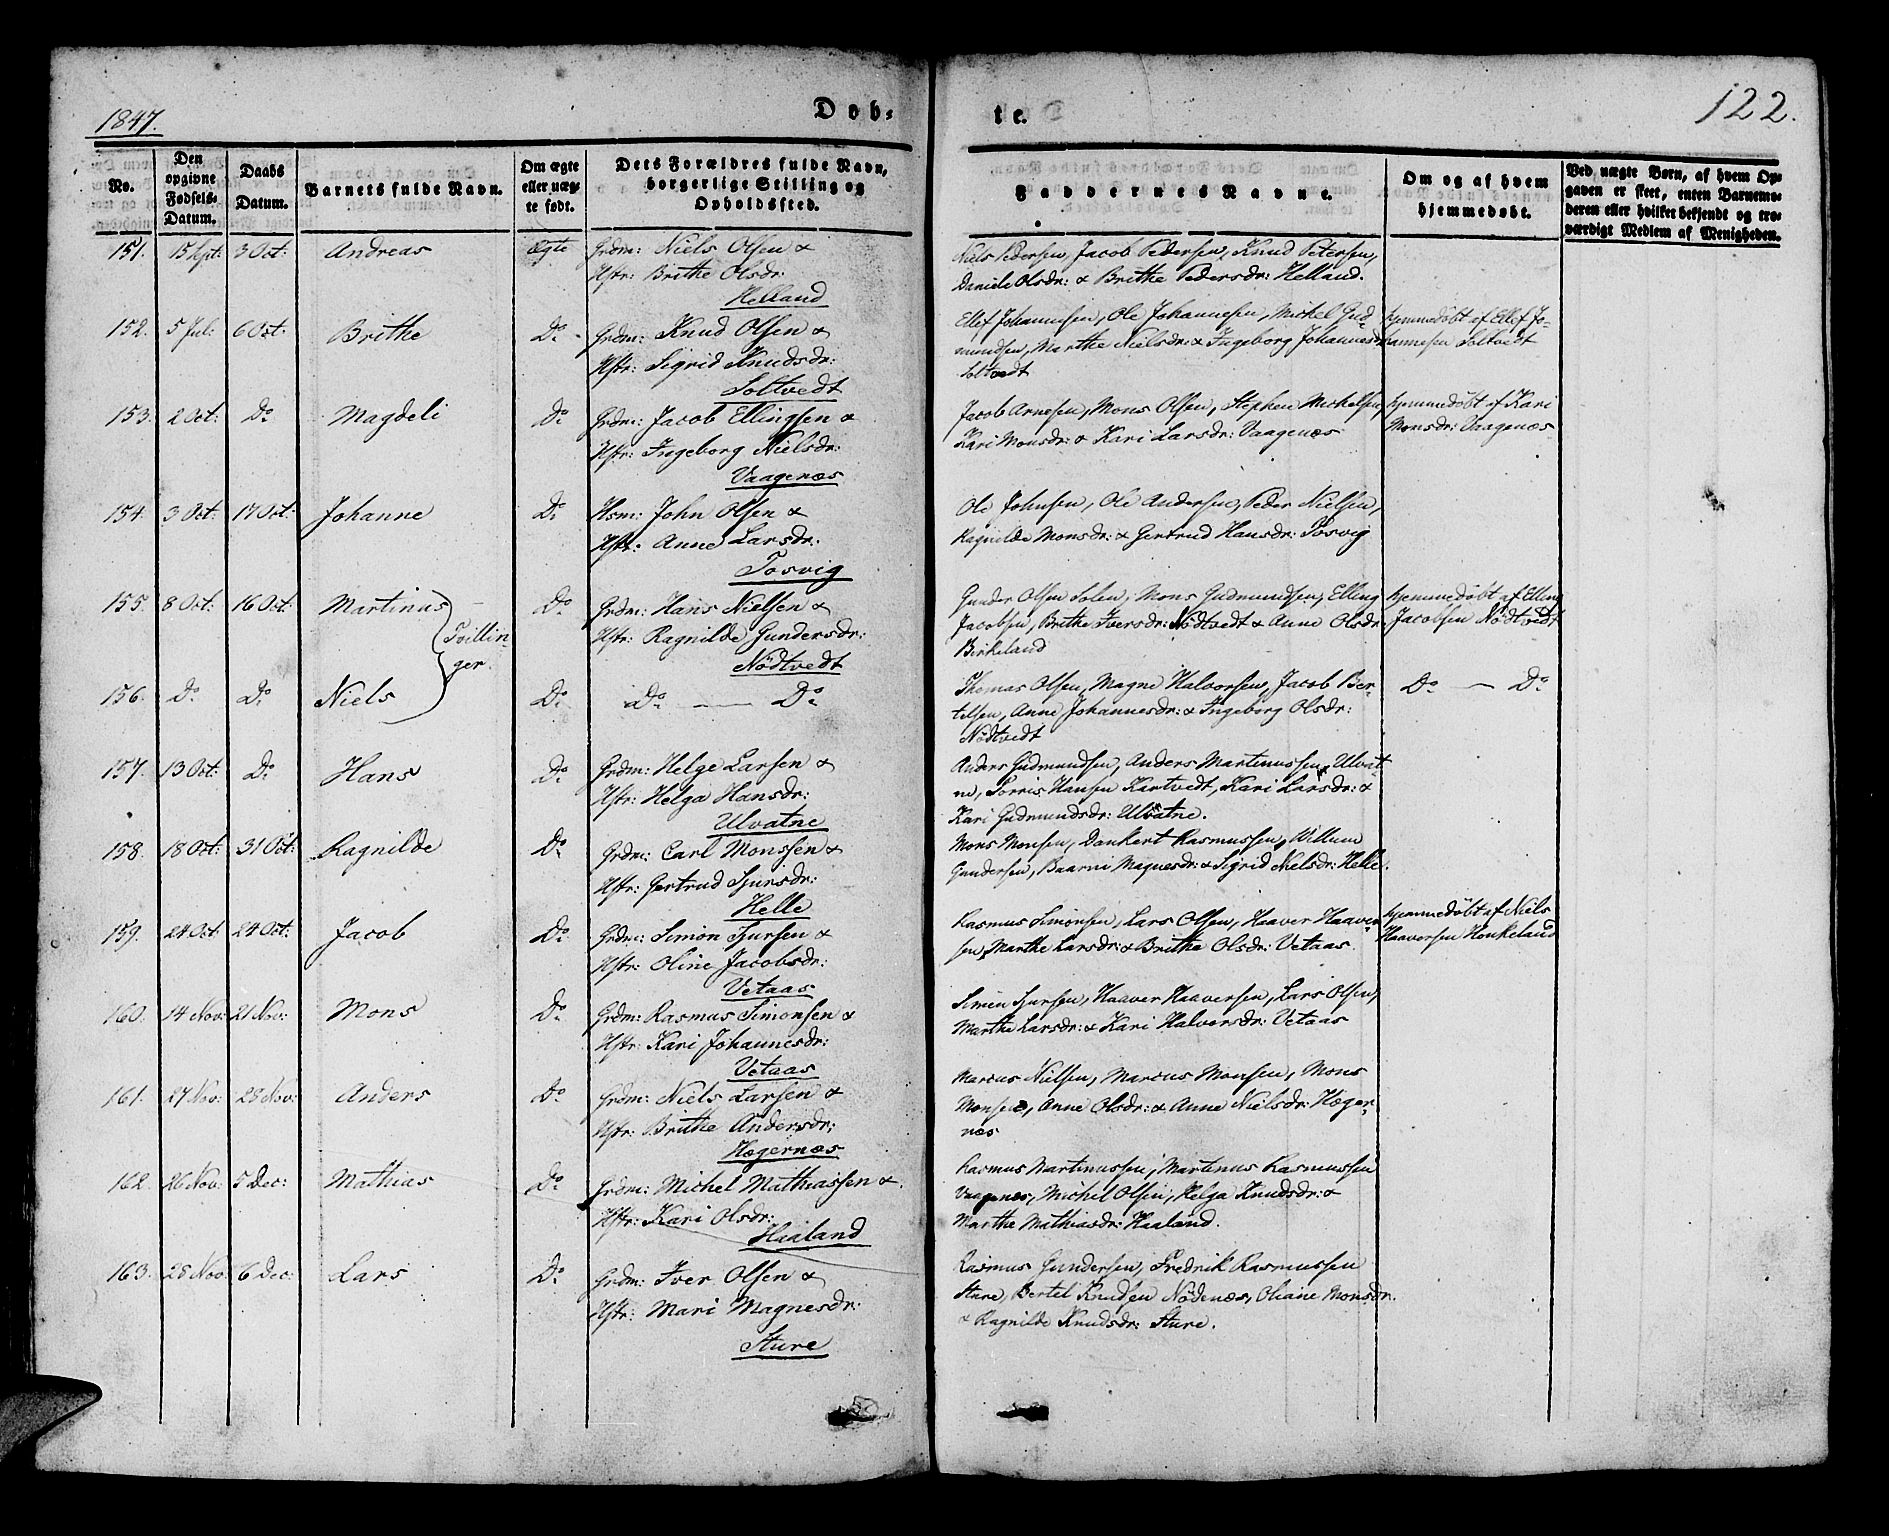 1847.
Døb-
te.
122.
No.
Den
opgivne
Fødsels-
Datum.
Daabs
Datum.
Barnets fulde Navn.
Om ægte
eller uæg-
te født.
Dets Forældres fulde Navn,
borgerlige Stilling og
Opholdssted.
Faddernes Navne.
Om og af hvem
hjemmedøbt.
Ved uægte Børn, af hvem Op-
gaven er skeet, enten Barnemo-
deren eller hvilket bekjendt og tro-
værdigt Medlem af Menigheden.
151. 15 Spt: 3 Oct: Andreas Ægte Grdm: Niels Olsen &
Hstr: Brithe Olsdr:
Helland
Niels Pedersen, Jacob Pedersen, Knud Petersen,
Daniele Olsdr: & Brithe Pedersdr: Helland.
152. 5 Jul: 6 Oct: Brithe Do. Grdm: Knud Olsen &
Hstr: Sigrid Knudsdr:
Soltvedt
Ellef Johannesen, Ole Johannesen, Michel Gud-
mundsen, Marthe Nielsdr: & Ingeborg Johannesdr:
Soltvedt
hjemmedøbt af Ellef Jo-
hannesen Soltvedt
153. 2 Oct: Do Magdeli Do. Grdm: Jacob Ellingsen &
Hstr: Ingeborg Nielsdr:
Vaagenæs
Jacob Arnesen, Mons Olsen, Stephen Michelsen,
Kari Monsdr: & Kari Larsdr: Vaagenæs
hjemmedøbt af Kari
Monsdr: Vaagenæs
154. 3 Oct: 17 Oct: Johanne Do. Hsm: John Olsen &
Hstr: Anne Larsdr:
Tosvig
Ole Johnsen, Ole Andersen, Peder Nielsen,
Ragnilde Monsdr: & Gertrud Hansdr: Tosvig
155. 8 Oct: 16 Oct: Martinus Do. Grdm: Hans Nielsen &
Tvillin-
ger.
Hstr: Ragnilde Gundersdr:
Nödtvedt
Gunder Olsen Solen, Mons Gudmundsen, Elling
Jacobsen, Brithe Iversdr: Nödtvedt & Anne Olsdr:
Birkeland
hjemmedøbt af Elling
Jacobsen Nödtvedt
156. Do. Do. Niels Do. Do. — Do.
Thomas Olsen, Magne Halvorsen, Jacob Ber-
telsen, Anne Johannesdr: & Ingeborg Olsdr:
Nödtvedt
Do. — Do.
157. 13 Oct: Do. Hans Do. Grdm: Helge Larsen &
Hstr: Helga Hansdr:
Ulvatne
Anders Gudmundsen, Anders Martinussen Ulvat-
ne, Torris Hansen Kartvedt, Kari Larsdr: &
Kari Gudmundsdr: Ulvatne.
158. 18 Oct: 31 Oct: Ragnilde Do. Grdm: Carl Monssen &
Hstr: Gertrud Sjursdr:
Helle
Mons Monsen, Dankert Rasmussen, Willum
Gundersen, Baarni Magnesdr: & Sigrid Nielsdr: Helle.
159. 24 Oct 24 Oct: Jacob Do. Grdm: Simon Sjursen &
Hstr: Oline Jacobsdr:
Vetaas
Rasmus Simonsen, Lars Olsen, Haaver Haaver-
sen, Marthe Larsdr: & Brithe Olsdr: Vetaas.
hjemmedøbt af Niels
Haaversen Honkeland
160. 14 Nov: 21 Nov: Mons Do. Grdm: Rasmus Simonsen &
Hstr: Kari Johannesdr:
Vetaas
Simen Sjursen, Haaver Haaversen, Lars Olsen,
Marthe Larsdr: & Kari Halversdr: Vetaas
161. 27 Nov: 28 Nov: Anders Do. Grdm: Niels Larsen &
Hstr: Brithe Andersdr:
Hægernæs
Marcus Nielsen, Marcus Monsen, Mons
Monsen, Anne Olsdr: & Anne Nielsdr: Hæger-
næs
162. 26 Nov: 5 Dec: Mathias Do. Grdm: Michel Mathiassen &
Hstr: Kari Olsdr:
Haaland
Rasmus Martinussen, Martinus Rasmussen
Vaagenæs, Michel Olsen, Helga Knudsdr: &
Marthe Mathiasdr: Haaland.
163. 28 Nov: 6 Dec: Lars Do. Grdm: Iver Olsen &
Hstr: Mari Magnesdr:
Sture
Rasmus Gundersen, Fredrik Rasmussen
Sture, Bertel Knudsen Nödenæs, Oliane Monsdr:
& Ragnilde Knudsdr: Sture.